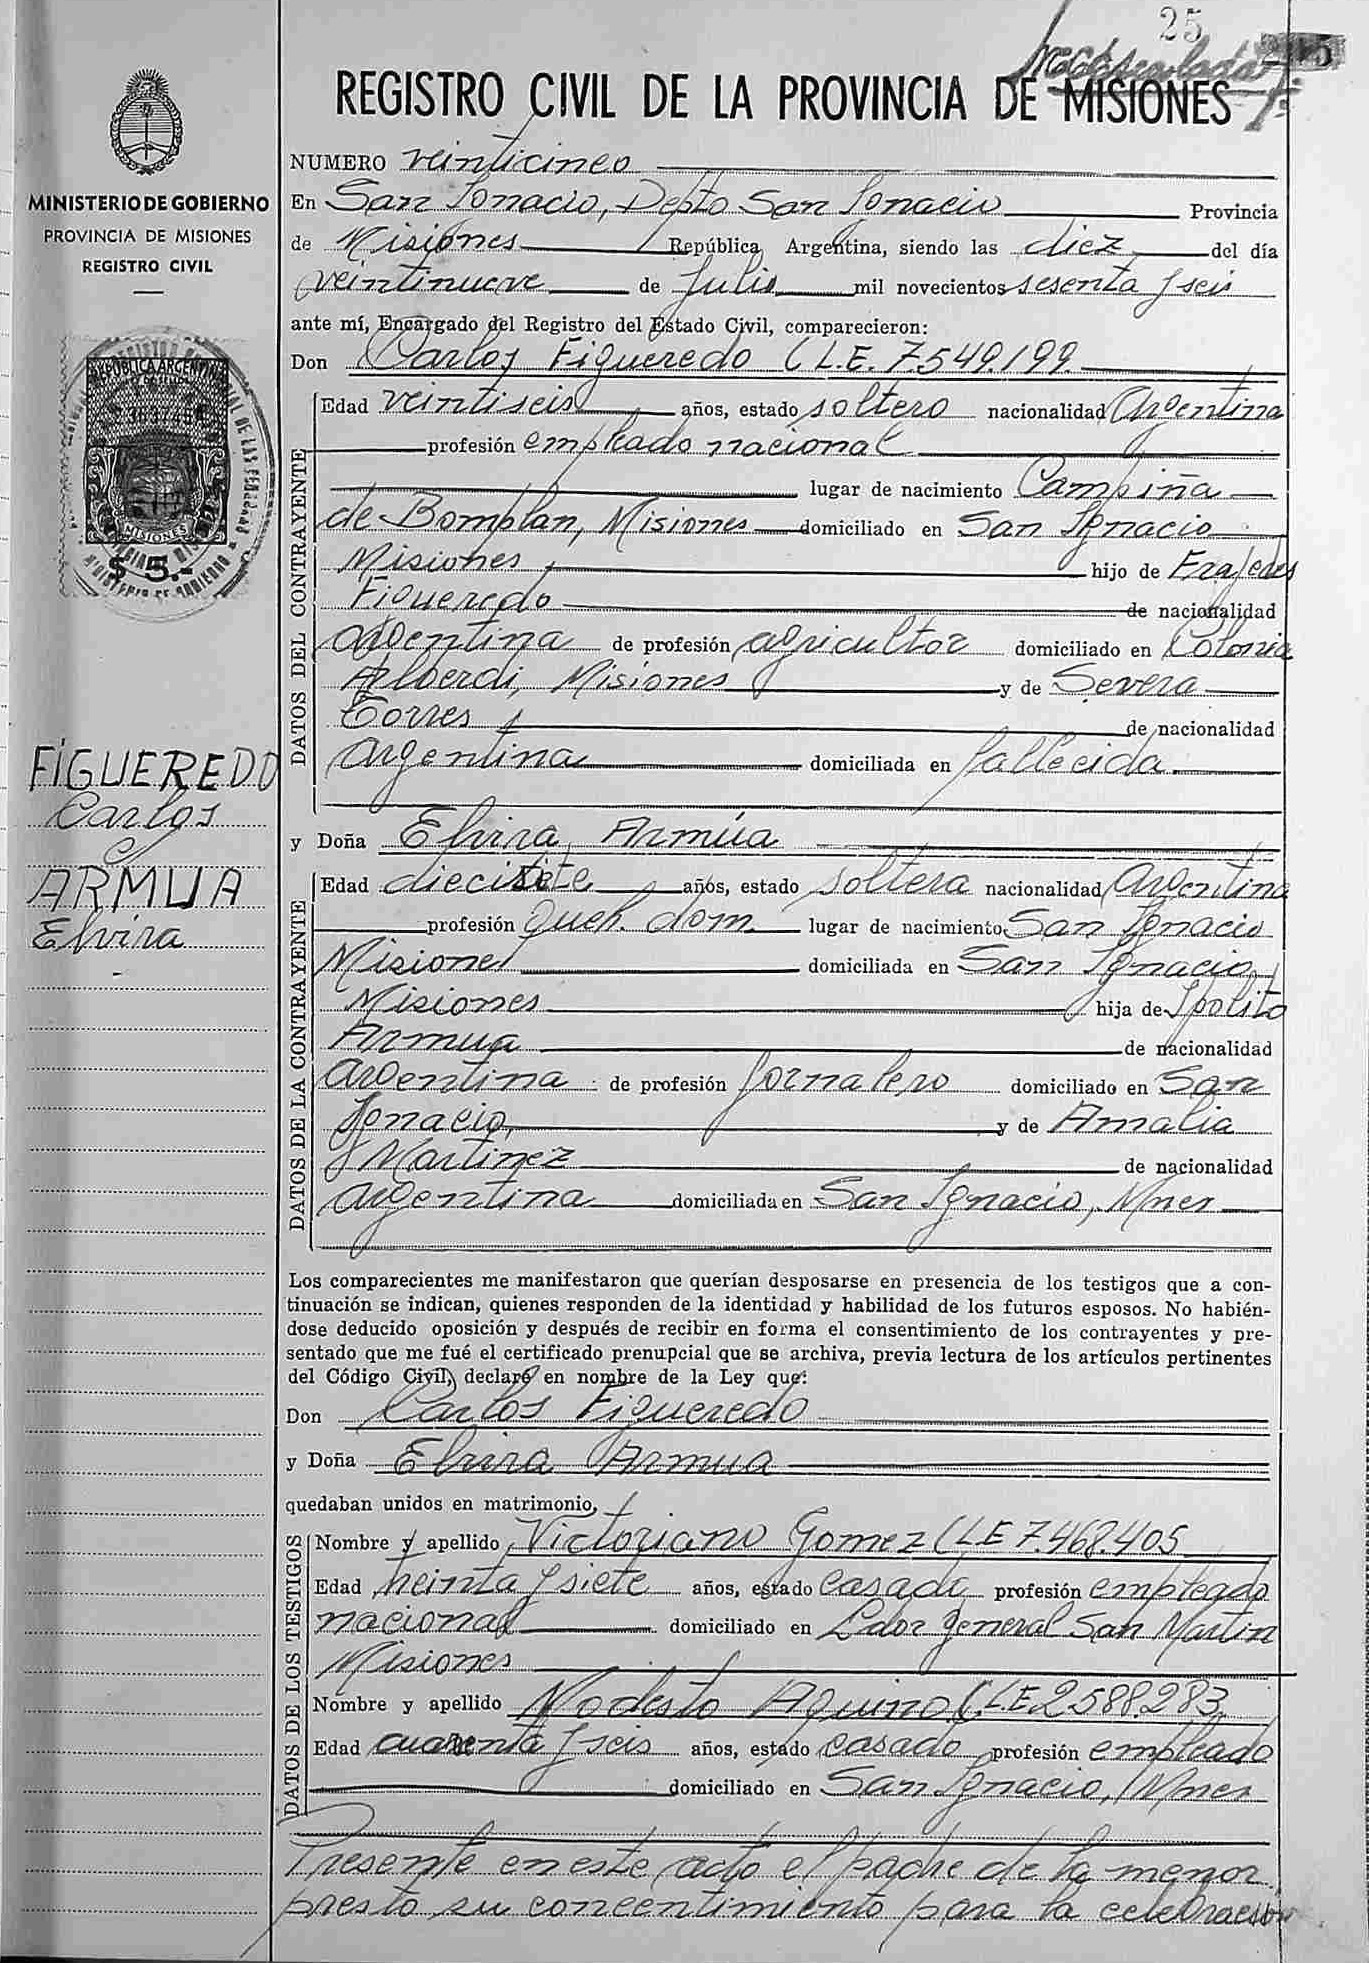 25
REGISTRO CIVIL DE LA PROVINCIA DE MISIONES
MINISTERIO DE GOBIERNO
PROVINCIA DE MISIONES
REGISTRO CIVIL
REPUBLICA ARGENTINA
MISIONES
$ 5.-
FIGUEREDO
Carlos
y
ARMUA
Elvira
-
NUMERO veinticinco
En San Ignacio, Depto San Ignacio Provincia
de Misiones República Argentina, siendo las diez del día
veintinueve de Julio mil novecientos sesenta y seis
ante mí, Encargado del Registro del Estado Civil, comparecieron:
Don Carlos Figueredo (L.E. 7.549.199
DATOS DEL CONTRAYENTE
Edad veintiseis años, estado soltero nacionalidad Argentina
profesión empleado nacional
lugar de nacimiento Campiña
de Bomplan, Misiones domiciliado en San Ignacio
Misiones, hijo de
Figueredo de nacionalidad
argentina de profesión agricultor domiciliado en Colonia
Alberdi, Misiones y de Severa
Torres, de nacionalidad
argentina domiciliada en fallecida.
y Doña Elvira Armúa
DATOS DE LA CONTRAYENTE
Edad diecisiete años, estado soltera nacionalidad Argentina
profesión Queh. dom. lugar de nacimiento San Ignacio
Misiones domiciliada en San Ignacio,
Misiones hija de Ipolito
Armua de nacionalidad
argentina de profesión jornalero domiciliado en San
Ignacio, y de Amalia
Martinez de nacionalidad
argentina domiciliada en San Ignacio, Mnes
Los comparecientes me manifestaron que querían desposarse en presencia de los testigos que a con-
tinuación se indican, quienes responden de la identidad y habilidad de los futuros esposos. No habién-
dose deducido oposición y después de recibir en forma el consentimiento de los contrayentes y pre-
sentado que me fué el certificado prenupcial que se archiva, previa lectura de los artículos pertinentes
del Código Civil, declaré en nombre de la Ley que:
Don Carlos Figueredo
y Doña Elvira Armua
quedaban unidos en matrimonio,
DATOS DE LOS TESTIGOS
Nombre y apellido Victoriano Gomez (LE 7.468.405
Edad treinta y siete años, estado casado profesión empleado
nacional domiciliado en Ldor General San Martin
Misiones
Nombre y apellido Modesto Aquino (L.E. 2.588.283.
Edad cuarenta y seis años, estado casado profesión empleado
domiciliado en San Ignacio, Mnes
Presente en este acto el padre de la menor
presto su concentimiento para la celebracion